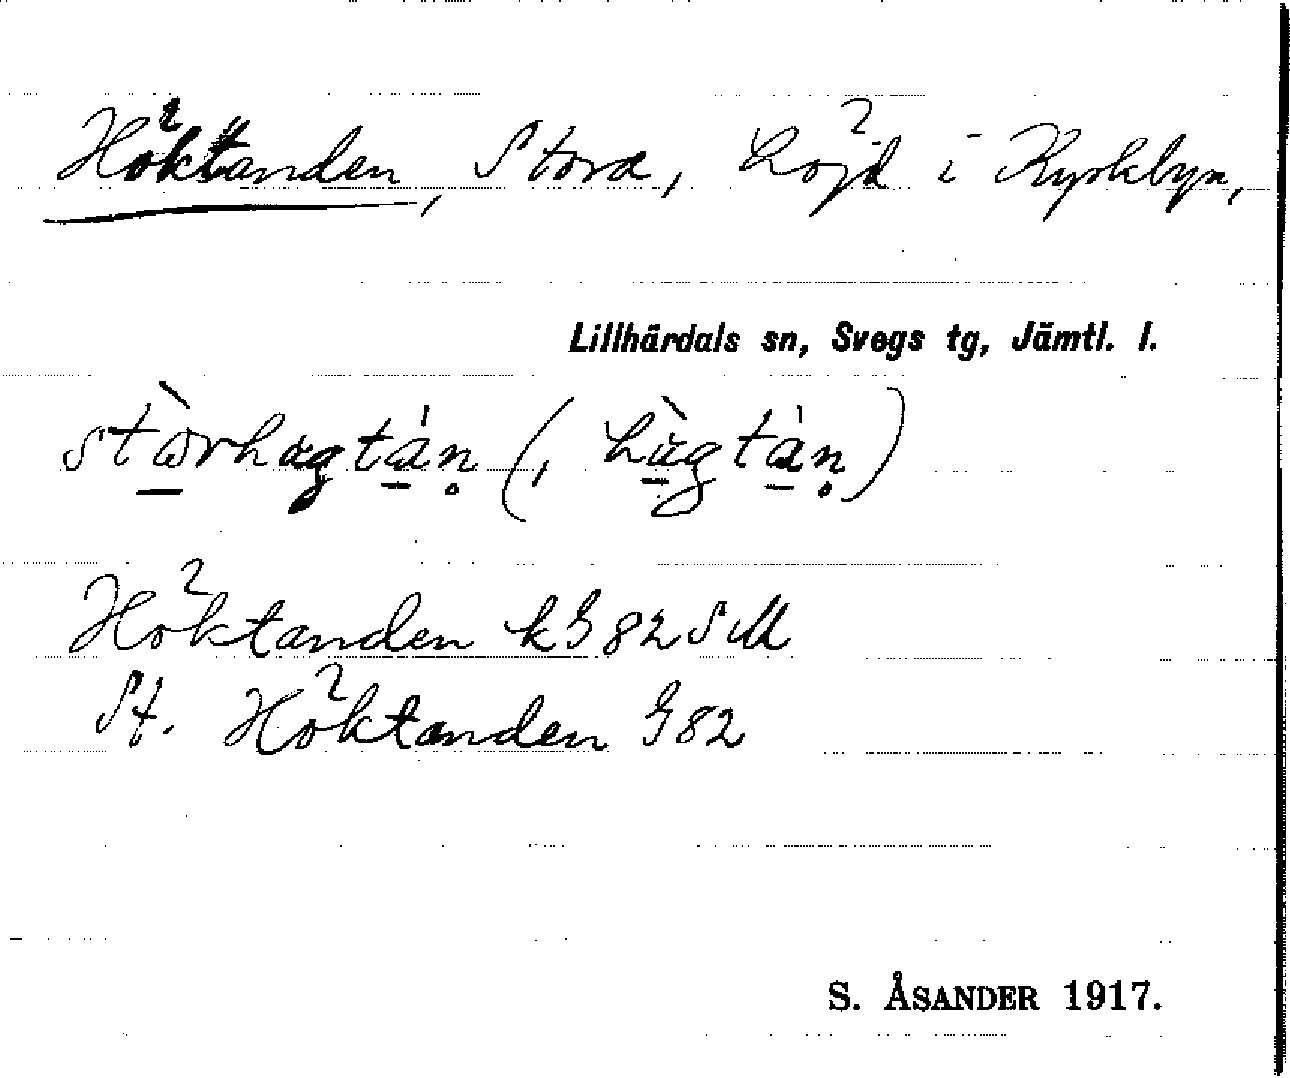 Höktanden, Stora, höjd i Kyrkbyn,
Lillhärdals sn, Svegs tg, Jämtl. l.
stὼ̱rhagtá̱ṇ (, hà̱gtá̱ṇ)
Höktanden kG82SM
St. Höktanden G82
S. ÅSANDER 1917.